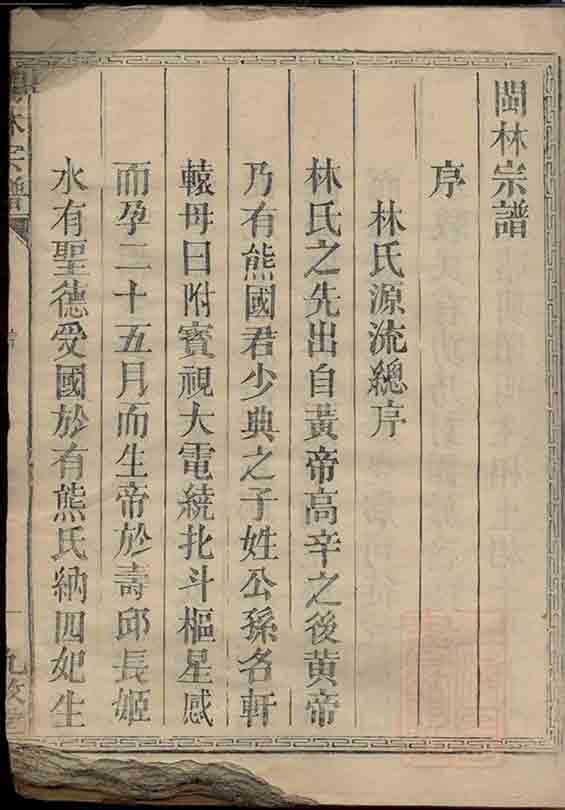 閩林宗譜
序
林氏源流總序
林氏之先出自黃帝高辛之後黃帝
乃有熊國君少典之子姓公孫名軒
轅母曰附寳視大電繞北斗樞星感
而孕二十五月而生帝於壽邱長姬
水有聖德受國於有熊氏納四妃生
林宗譜
一
九牧